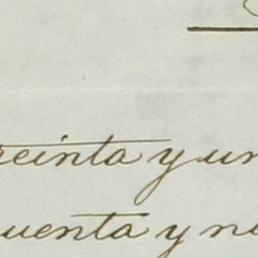 reinta y un
uenta y nu